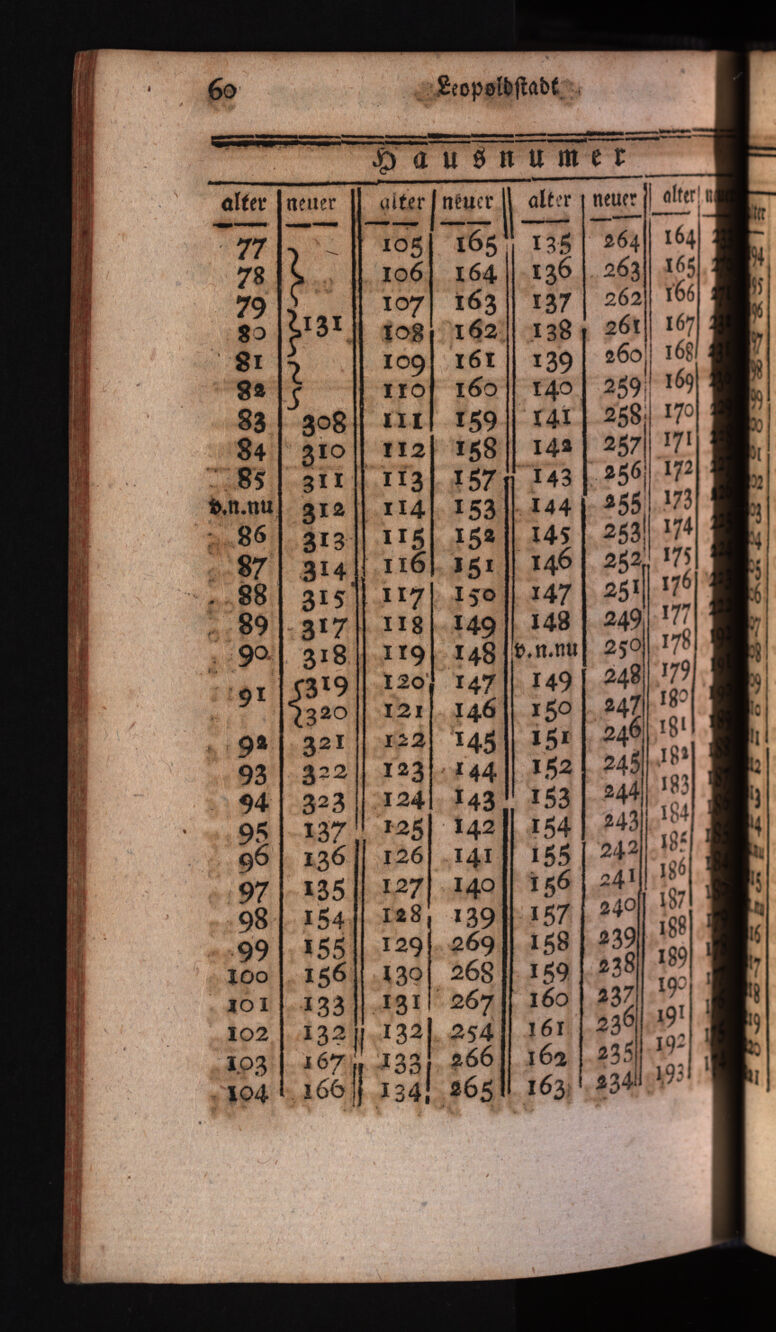 60 Leopoldstadt
Hausnumer
alter neuer alter neuer alter neuer alter
77 105 165 135 264 164
78 106 164 136 263 165
79 107 163 137 262 166
80 131 108 162 138 261 167
81 109 161 139 260 168
82 110 160 140 259 169
83 308 111 159 141 258 170
84 310 112 158 142 257 171
85 311 113 157 143 256 172
v.n.nu 312 114 153 144 255 173
86 313 115 152 145 253 174
87 314 116 151 146 252 175
88 315 117 150 147 251 176
89 317 118 149 148 249 177
90 318 119 148 v.n.nu 250 178
91 319 120 147 149 248 179
320 121 146 150 247 180
92 321 122 145 151 246 181
93 322 123 144 152 245 182
94 323 124 143 153 244 183
95 137 125 142 154 243 184
96 136 126 141 155 242 185
97 135 127 140 156 241 186
98 154 128 139 157 240 187
99 155 129 269 158 239 188
100 156 130 268 159 238 189
101 133 131 267 160 237 190
102 132 132 254 161 236 191
103 167 133 266 162 235 192
104 166 134 265 163 234 193